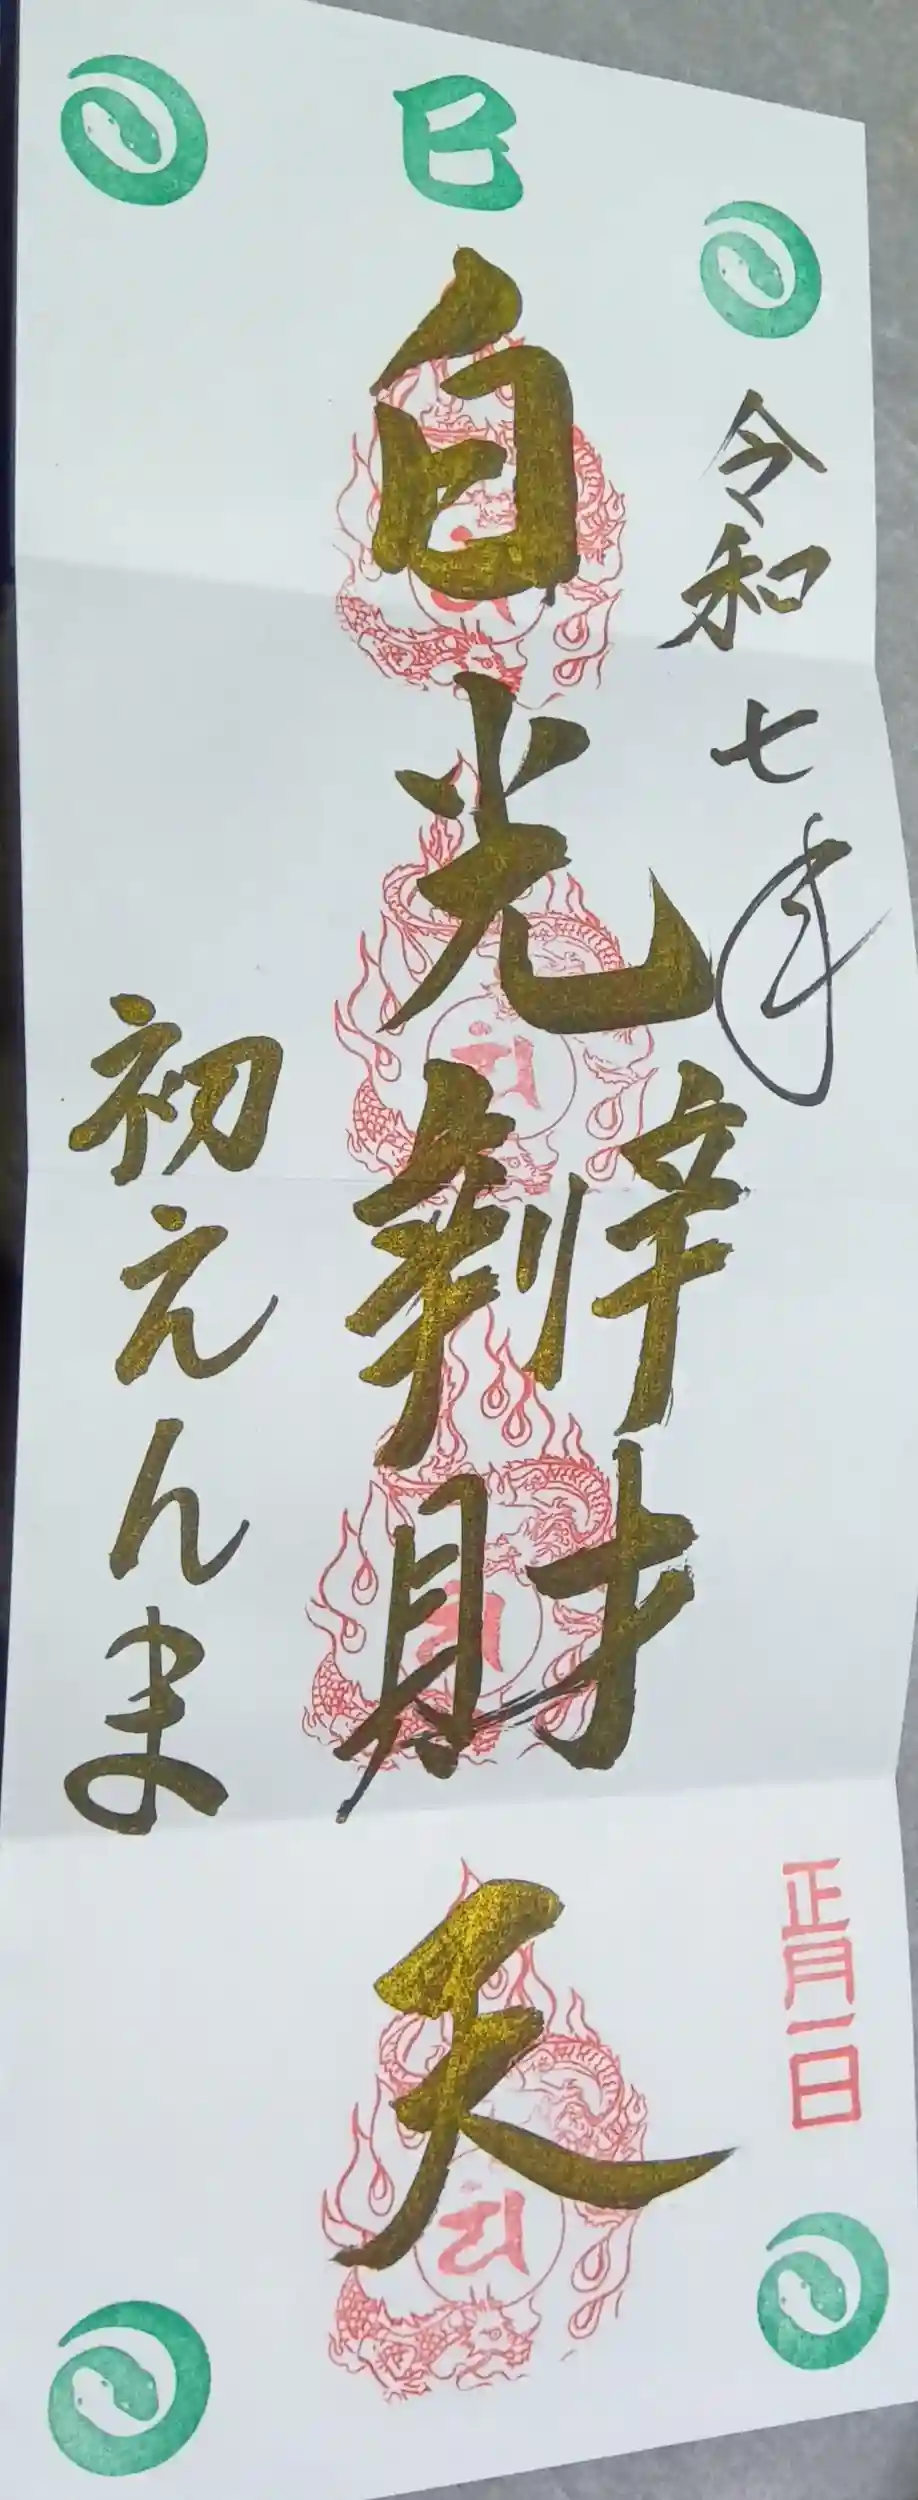 令和七年
正月一日
巳
白光辨財天
初えんま